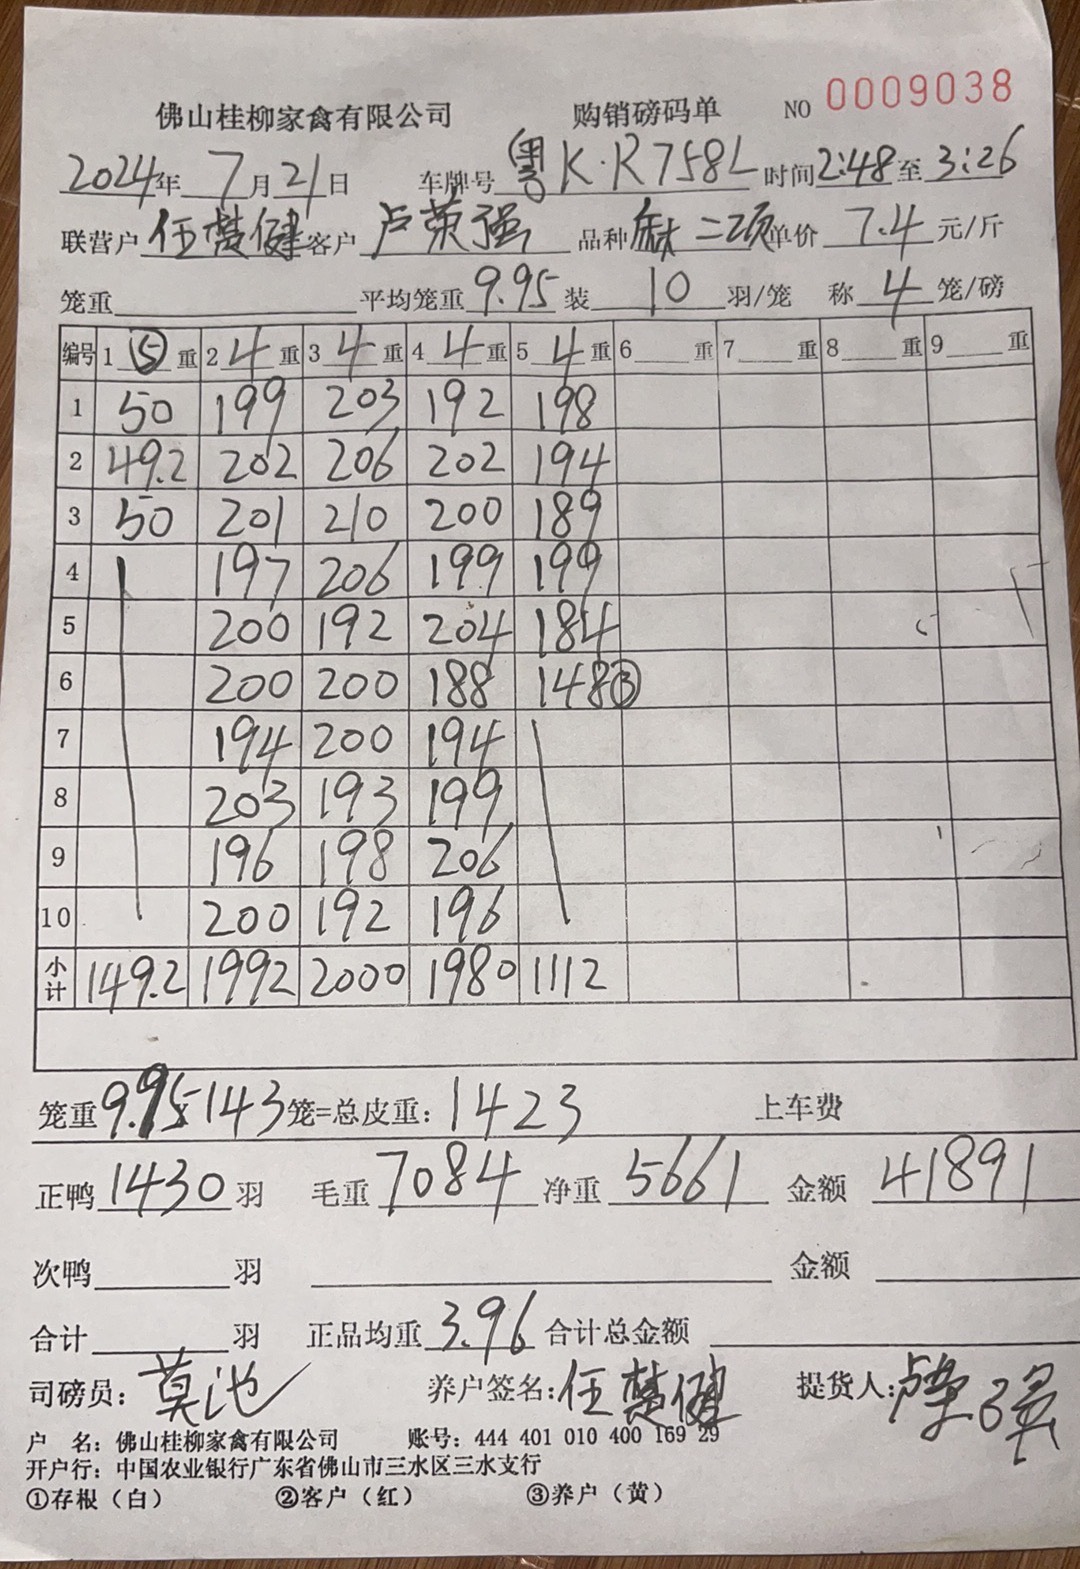 佛山桂柳家禽有限公司 购销磅码单 NO 0009038
2024年 7月21日 车牌号 粤K·R758L 时间2:48至3:26
联营户 任楚健 客户 卢荣强 品种 二项 单价 7.4 元/斤
笼重 平均笼重 9.95 装 10 羽/笼 称 4 笼/磅
编号 1 ⑤ 重 2 4 重 3 4 重 4 4 重 5 4 重 6 重 7 重 8 重 9 重
1 50 199 203 192 198
2 49.2 202 206 202 194
3 50 201 210 200 189
4 197 206 199 199
5 200 192 204 184
6 200 200 188 148③
7 194 200 194
8 203 193 199
9 196 198 206
10 200 192 196
小计 149.2 1992 2000 1980 1112
笼重9.95x143笼=总皮重: 1423 上车费
正鸭 1430 羽 毛重 7084 净重 5661 金额 41891
次鸭 羽 金额
合计 羽 正品均重 3.96 合计总金额
司磅员: 莫池 养户签名: 任楚健 提货人: 卢荣强
户 名: 佛山桂柳家禽有限公司 账号: 444 401 010 400 169 29
开户行: 中国农业银行广东省佛山市三水区三水支行
①存根（白） ②客户（红） ③养户（黄）